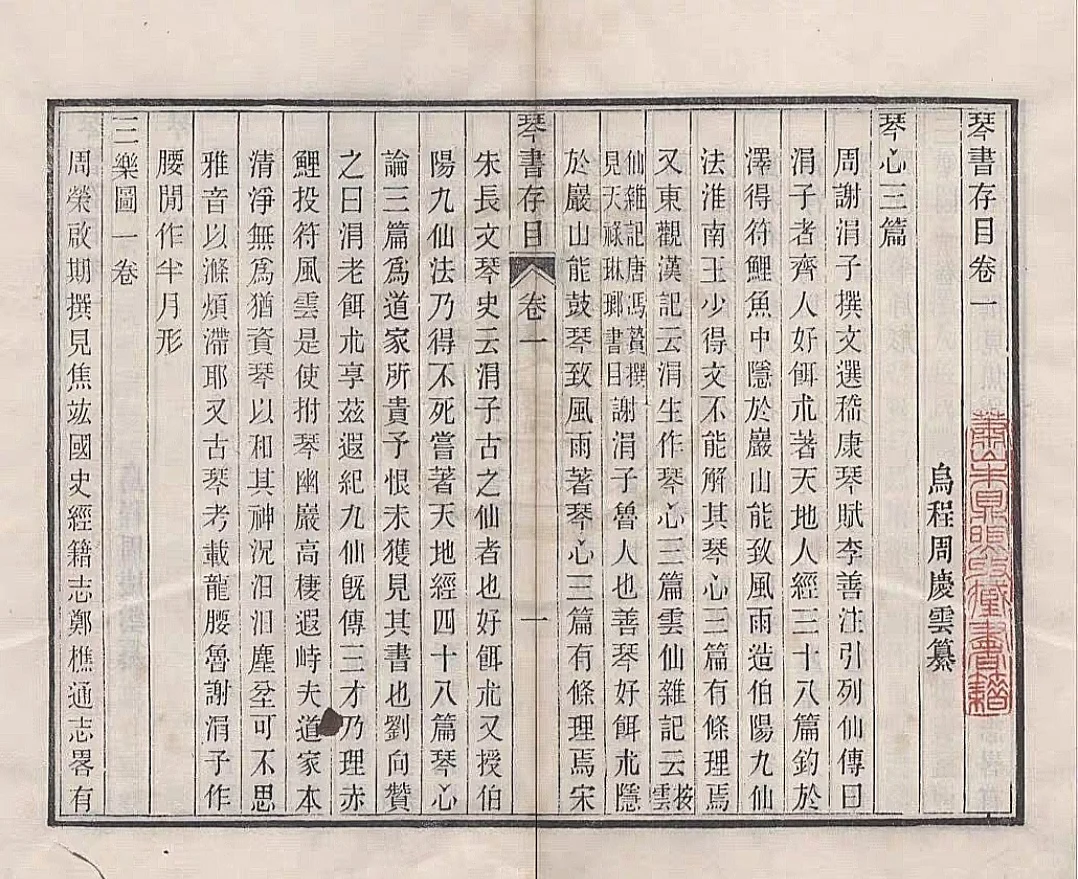 琴書存目卷一
烏程周慶雲纂
琴心三篇
周謝涓子撰文選嵇康琴賦李善注引列仙傳曰
涓子者齊人好餌朮著天地人經三十八篇釣於
澤得符鯉魚中隱於巖山能致風雨造伯陽九仙
法淮南王少得文不能解其琴心三篇有條理焉
又東觀漢記云涓生作琴心三篇雲仙雜記云按雲
仙雜記唐馮贄撰
見天祿琳瑯書目謝涓子魯人也善琴好餌朮隱
於巖山能鼓琴致風雨著琴心三篇有條理焉宋
琴書存目 卷一 一
朱長文琴史云涓子古之仙者也好餌朮又授伯
陽九仙法乃得不死嘗著天地經四十八篇琴心
論三篇爲道家所貴予恨未獲見其書也劉向贊
之曰涓老餌朮享茲遐紀九仙旣傳三才乃理赤
鯉投符風雲是使拊琴幽巖高棲遐峙夫道家本
清淨無爲猶資琴以和其神況汩汩塵坌可不思
雅音以滌煩滯耶又古琴考載龍腰魯謝涓子作
腰閒作半月形
三樂圖一卷
周榮啟期撰見焦竑國史經籍志鄭樵通志畧有